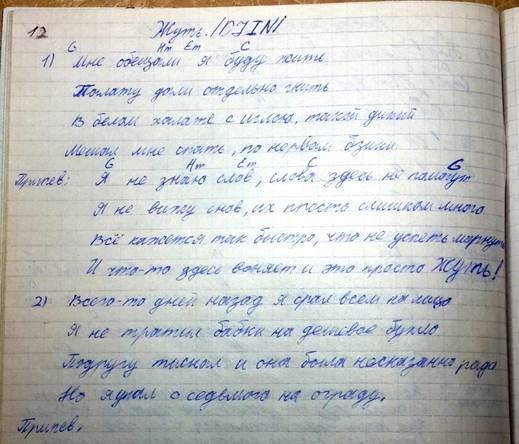 12 Жуть. /DJIN/
G Hm Em C
1) Мне обещали я буду жить
Палату дали отдельно гнить
В белом халате с иглою, такой дикий
Мешал мне спать, по нервам бзики
G Hm Em C G
Припев: Я не знаю слов, слова здесь не помогут
Я не вижу снов, их просто слишком много
Всё кажется так быстро, что не успеть моргнуть
И что-то здесь воняет и это просто Жуть!
2) Всего-то дней назад я срал всем на лицо
Я не тратил бабки на дешевое бухло
Подругу тискал и она была несказанно рада
Но я упал с седьмого на ограду.
Припев.